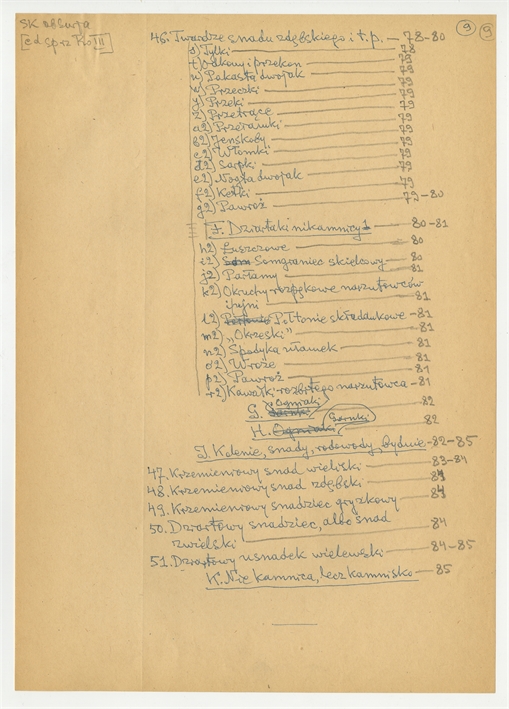 SK obsuja
[cd sprz Kro III]
9 9
46. Twardze snadu zdębskiego i t.p. — 78-80
s) Tylki — 78
t) Odkowy i przekon — 79
u) Pakasta dwojak — 79
w) Przeczki — 79
y) Przeki — 79
z) Przetrącę — 79
a2) Przeramki — 79
b2) Jenskoby — 79
c2) Włomki — 79
d2) Sapki — 79
e2) Nogta dwojak — 79
f2) Kełki — 79
g2) Pawroż — 79-80
F. Dziartaki nikamnicy — 80-81
h2) Łuszczowe — 80
i2) Somgraniec skielcowy — 80
j2) Parłamy — 81
k2) Okruchy rozpękowe narzutowców
i pejni — 81
l2) Półtonie składankowe — 81
m2) „Okręski" — 81
n2) Spodyka ułamek — 81
o2) Wroże — 81
p2) Pawroż — 81
r2) Kawałki rozbitego narzutowca — 81
G. Ogniaki — 82
H. Ogniaki Garnki — 82
J. Kolenie, snady, rodowody, bydnie — 82-85
47. Krzemieniowy snad wieliski — 83-84
48. Krzemieniowy snad zdębski — 84
49. Krzemieniowy snadziec gryzkowy — 84
50. Dziartowy snadziec, albo snad
zwielski — 84
51. Dziartowy usnadek wielewski — 84-85
K. Nie kamnica, lecz kamnisko — 85